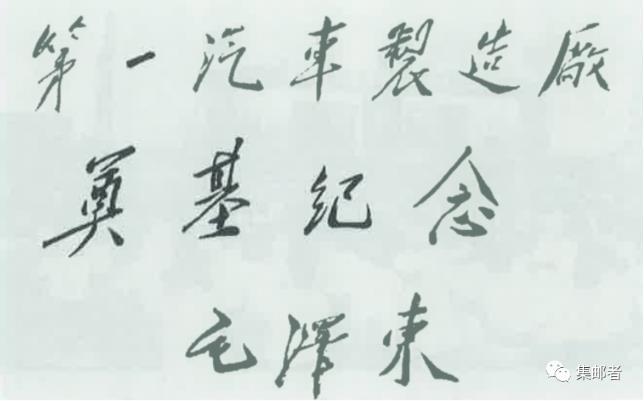 第一汽車製造廠
奠基纪念
毛澤東
集邮者